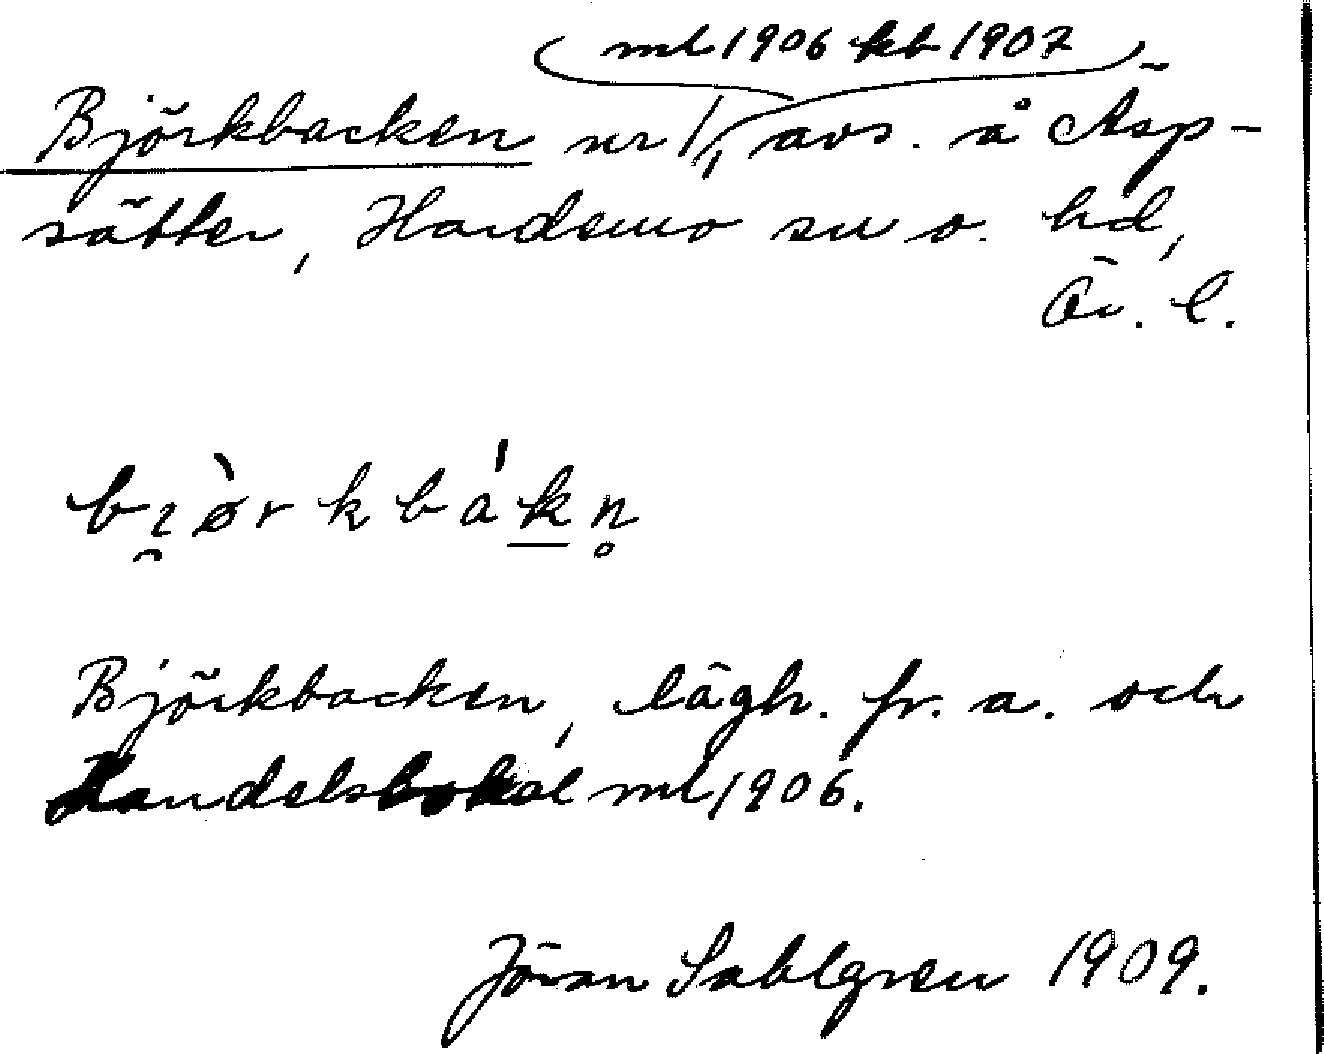 ml 1906 kb 1907
Björkbacken nr 1, avs. å Äsp-
sätter, Hardemo sn o. hd,
Ör. l.
bɪ̯ø̀rkbák̲n̥
Björkbacken, lägh. fr. a. och
Handelslokal ml 1906.
Jöran Sahlgren 1909.